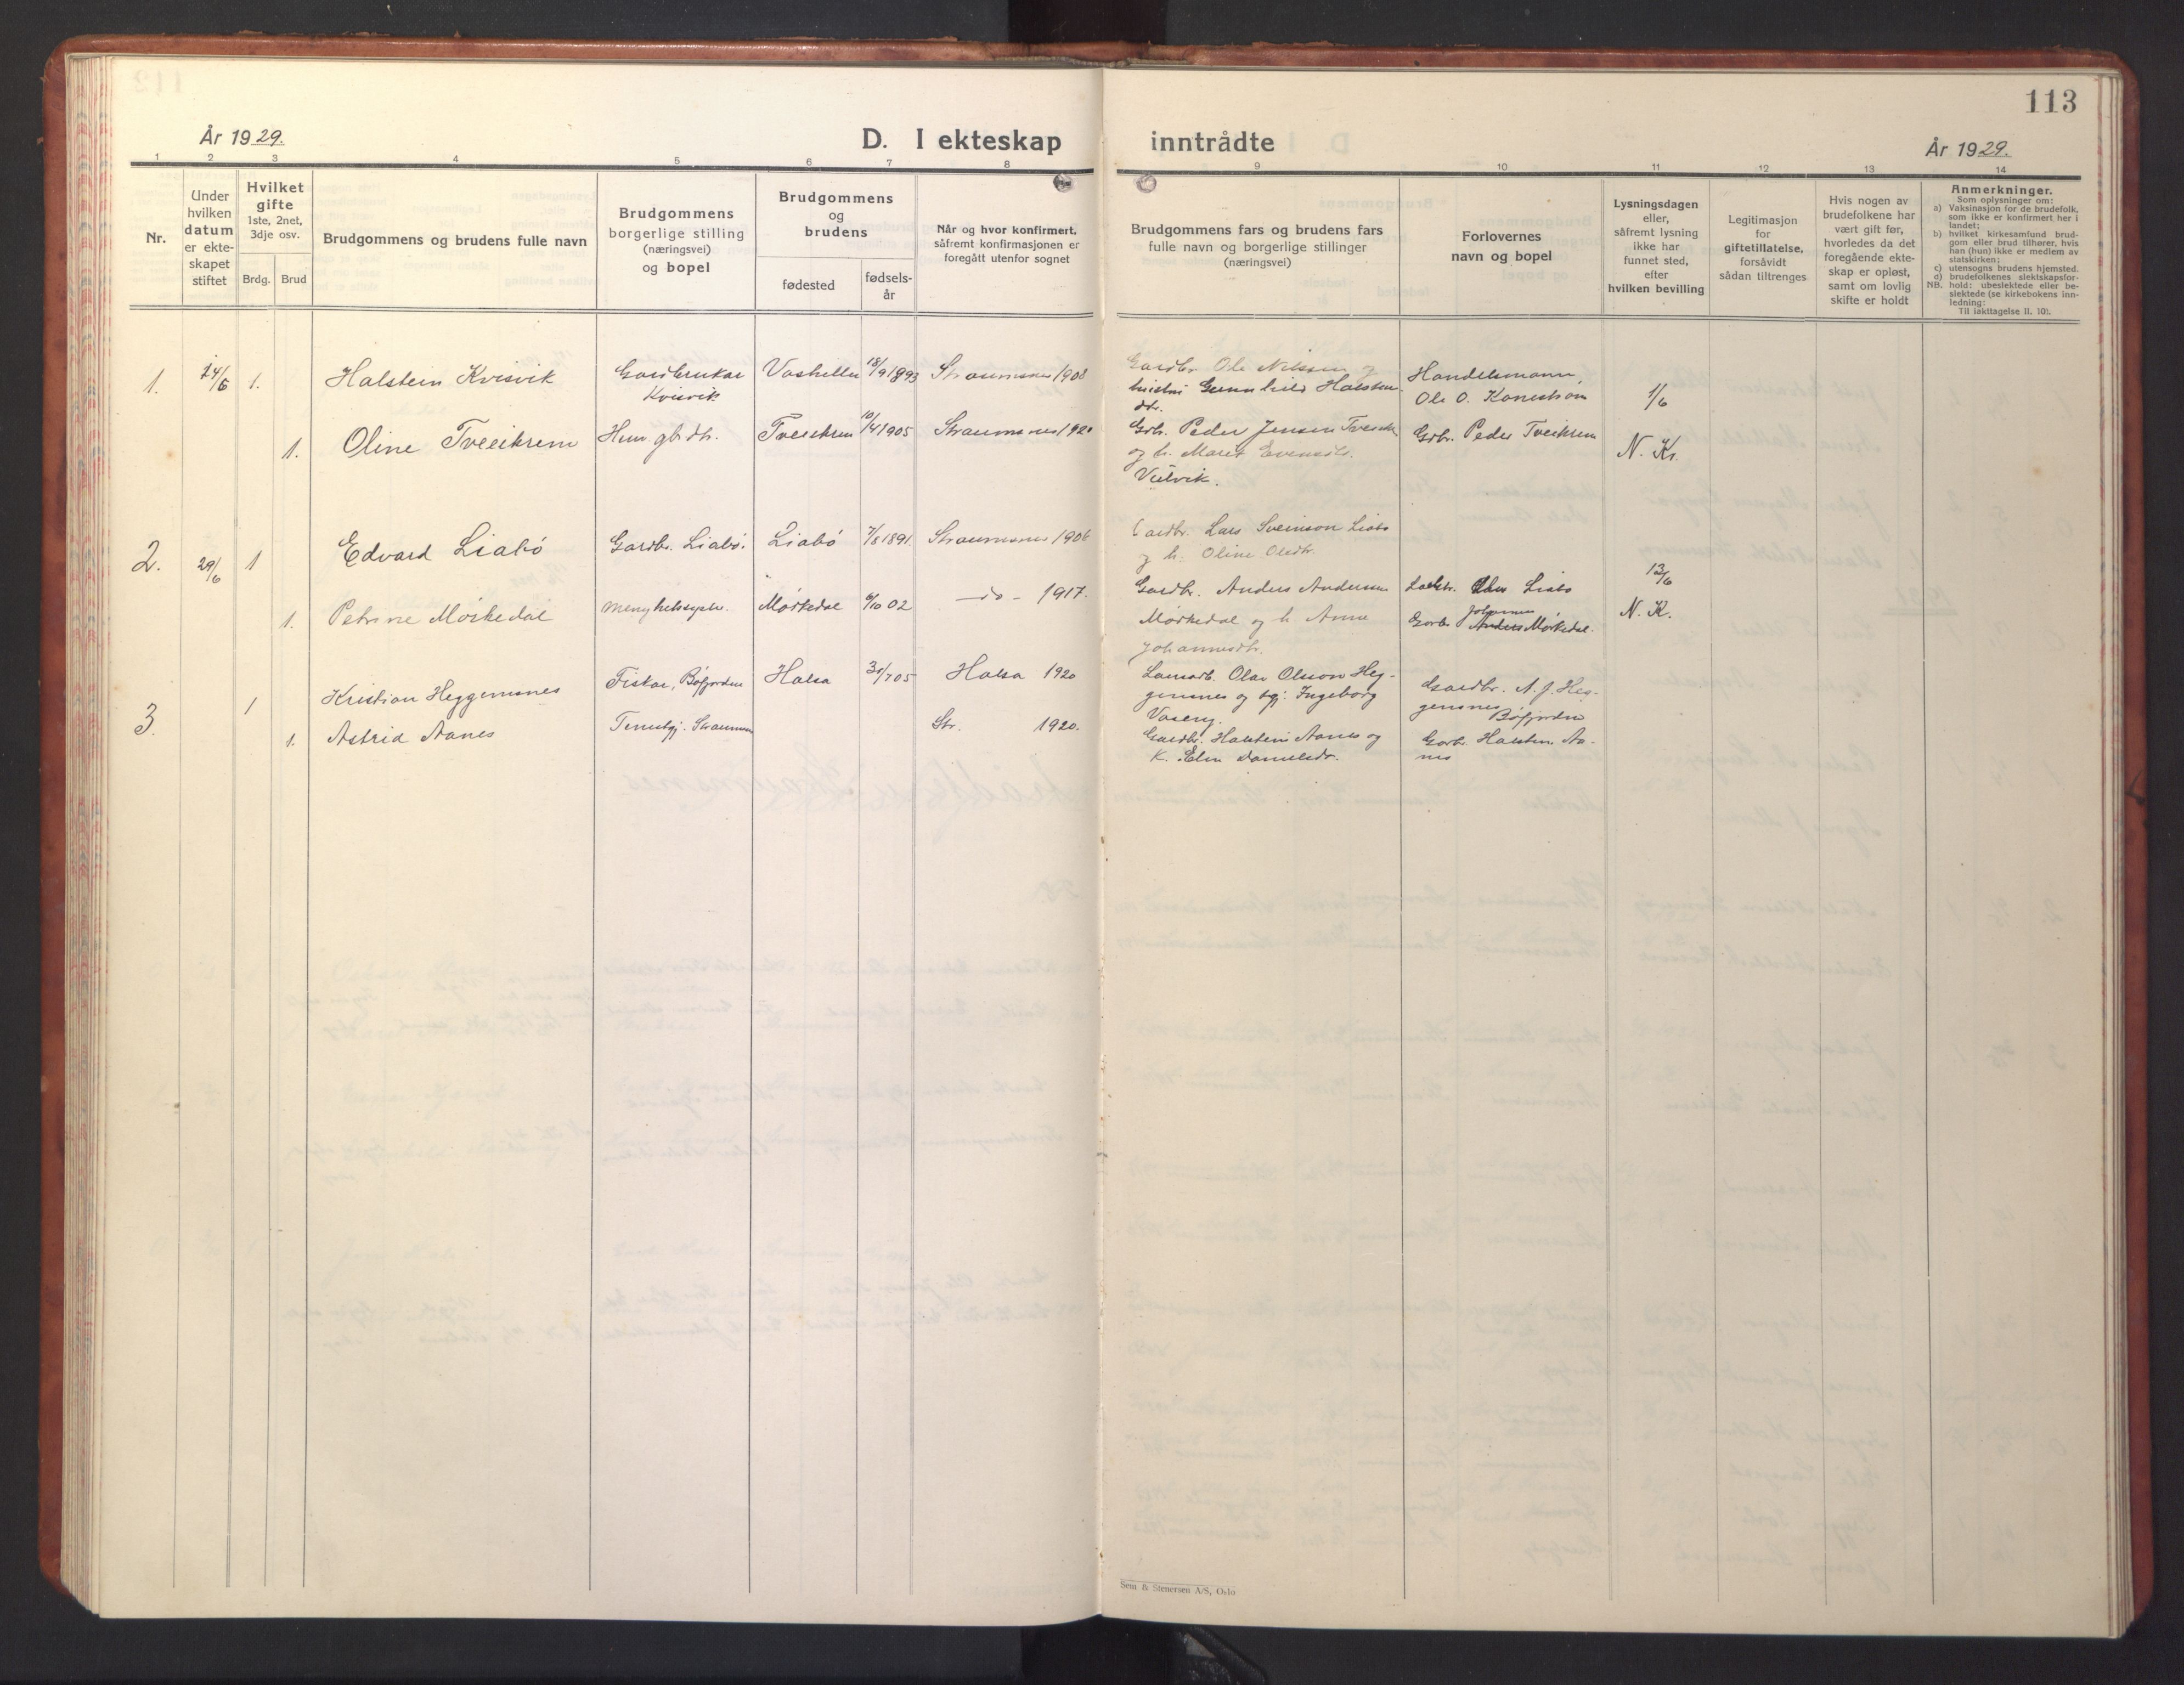 113
År 1929.
D. I ekteskap inntrådte
År 1929.
1 2 3 4 5 6 7 8 9 10 11 12 13 14
Nr.
Under
hvilken
datum
er ekte-
skapet
stiftet
Hvilket
gifte
1ste, 2net,
3dje osv.
Brdg. Brud
Brudgommens og brudens fulle navn
Brudgommens
borgerlige stilling
(næringsvei)
og bopel
Brudgommens
og
brudens
fødested
fødsels-
år
Når og hvor konfirmert,
såfremt konfirmasjonen er
foregått utenfor sognet
Brudgommens fars og brudens fars
fulle navn og borgerlige stillinger
(næringsvei)
Forlovernes
navn og bopel
Lysningsdagen
eller,
såfremt lysning
ikke har
funnet sted,
efter
hvilken bevilling
Legitimasjon
for
giftetillatelse,
forsåvidt
sådan tiltrenges
Hvis nogen av
brudefolkene har
vært gift før,
hvorledes da det
foregående ekte-
skap er opløst,
samt om lovlig
skifte er holdt
Anmerkninger.
Som oplysninger om:
a) Vaksinasjon for de brudefolk,
som ikke er konfirmert her i
landet;
b) hvilket kirkesamfund brud-
gom eller brud tilhører, hvis
han (hun) ikke er medlem av
statskirken;
c) utensogns brudens hjemsted.
d) brudefolkenes slektskapsfor-
NB. hold: ubeslektede eller be-
slektede (se kirkebokens inn-
ledning:
Til iakttagelse II. 10).
1. 14/6 1. Halstein Kvisvik
Gardbrukar
Kvisvik
18/9 1893 Straumsnes 1908
Gardbr. Ole Nilssen og
Gunnhild Halsten-
dtr.
Handelsmann
Ole O. Kanestrøm
1/6
1. Oline Tveeikrem
Tveeikrem 10/4 1905 Straumsnes 1920
Grbr. Peder Jensen
og h. Maret Evensdtr.
Grbr. Peder Tveikrem
N. Kr.
2. 29/6 1 Edvard Liabö
Gardbr. Liabö. Liabö 7/8 1891 Straumsnes 1906
Gardbr. Lars Sveinson Liabö
og h. Oline Olsdtr.
Liabö
13/6
1. Petrine Mörkedal
Mörkedal 6/10 02 -do- 1917.
Gardbr. Anders Andersen
Mörkedal og h Anne
Johannesdtr.
Johannes
Gardb. Anders Mörkedal.
N. K.
3. 1 Kristian Heggemsnes
Fiskar, Böfjorden Halsa 30/7 05 Halsa 1920
Olav Olsson Heg-
gemsnes og Ingeborg
Gardbr. A. J. Heg-
gemsnes
Böfjorden
1. Astrid Aanes
Str. 1920.
Gardbr. Halstein Aanes og
K. Elen Danielsdr.
Gardb. Halsten Aa-
nes
Sem & Stenersen A/S, Oslo